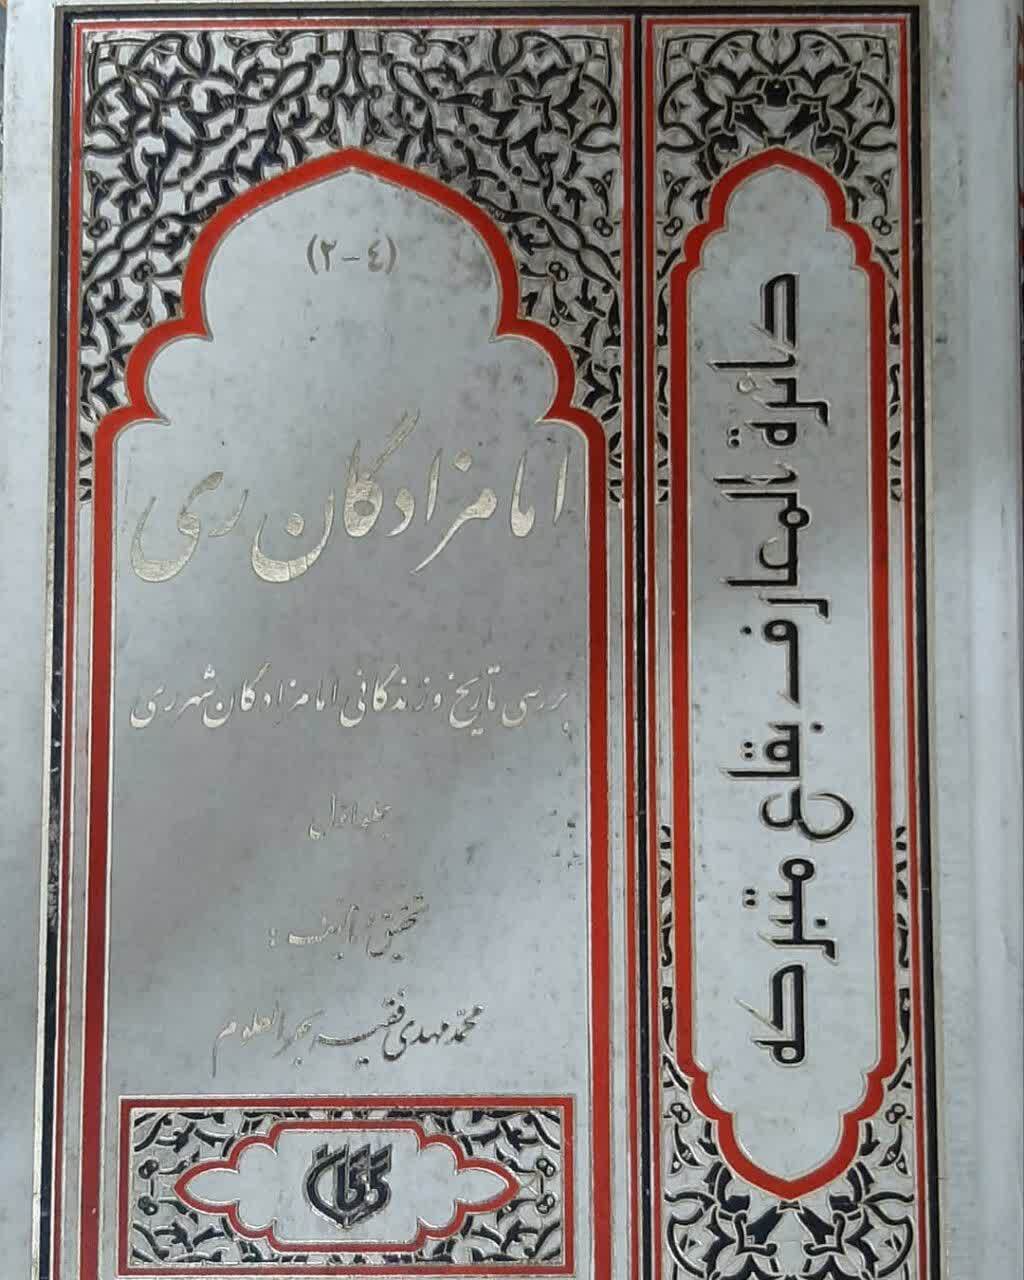 (٤-٢)
امامزادگان ری
بررسی تاریخ و زندگانی امامزادگان شهرری
جلد اول
تحقیق و تألیف:
محمّدمهدی فقیه بحرالعلوم
دائرة المعارف بقاع متبرکه